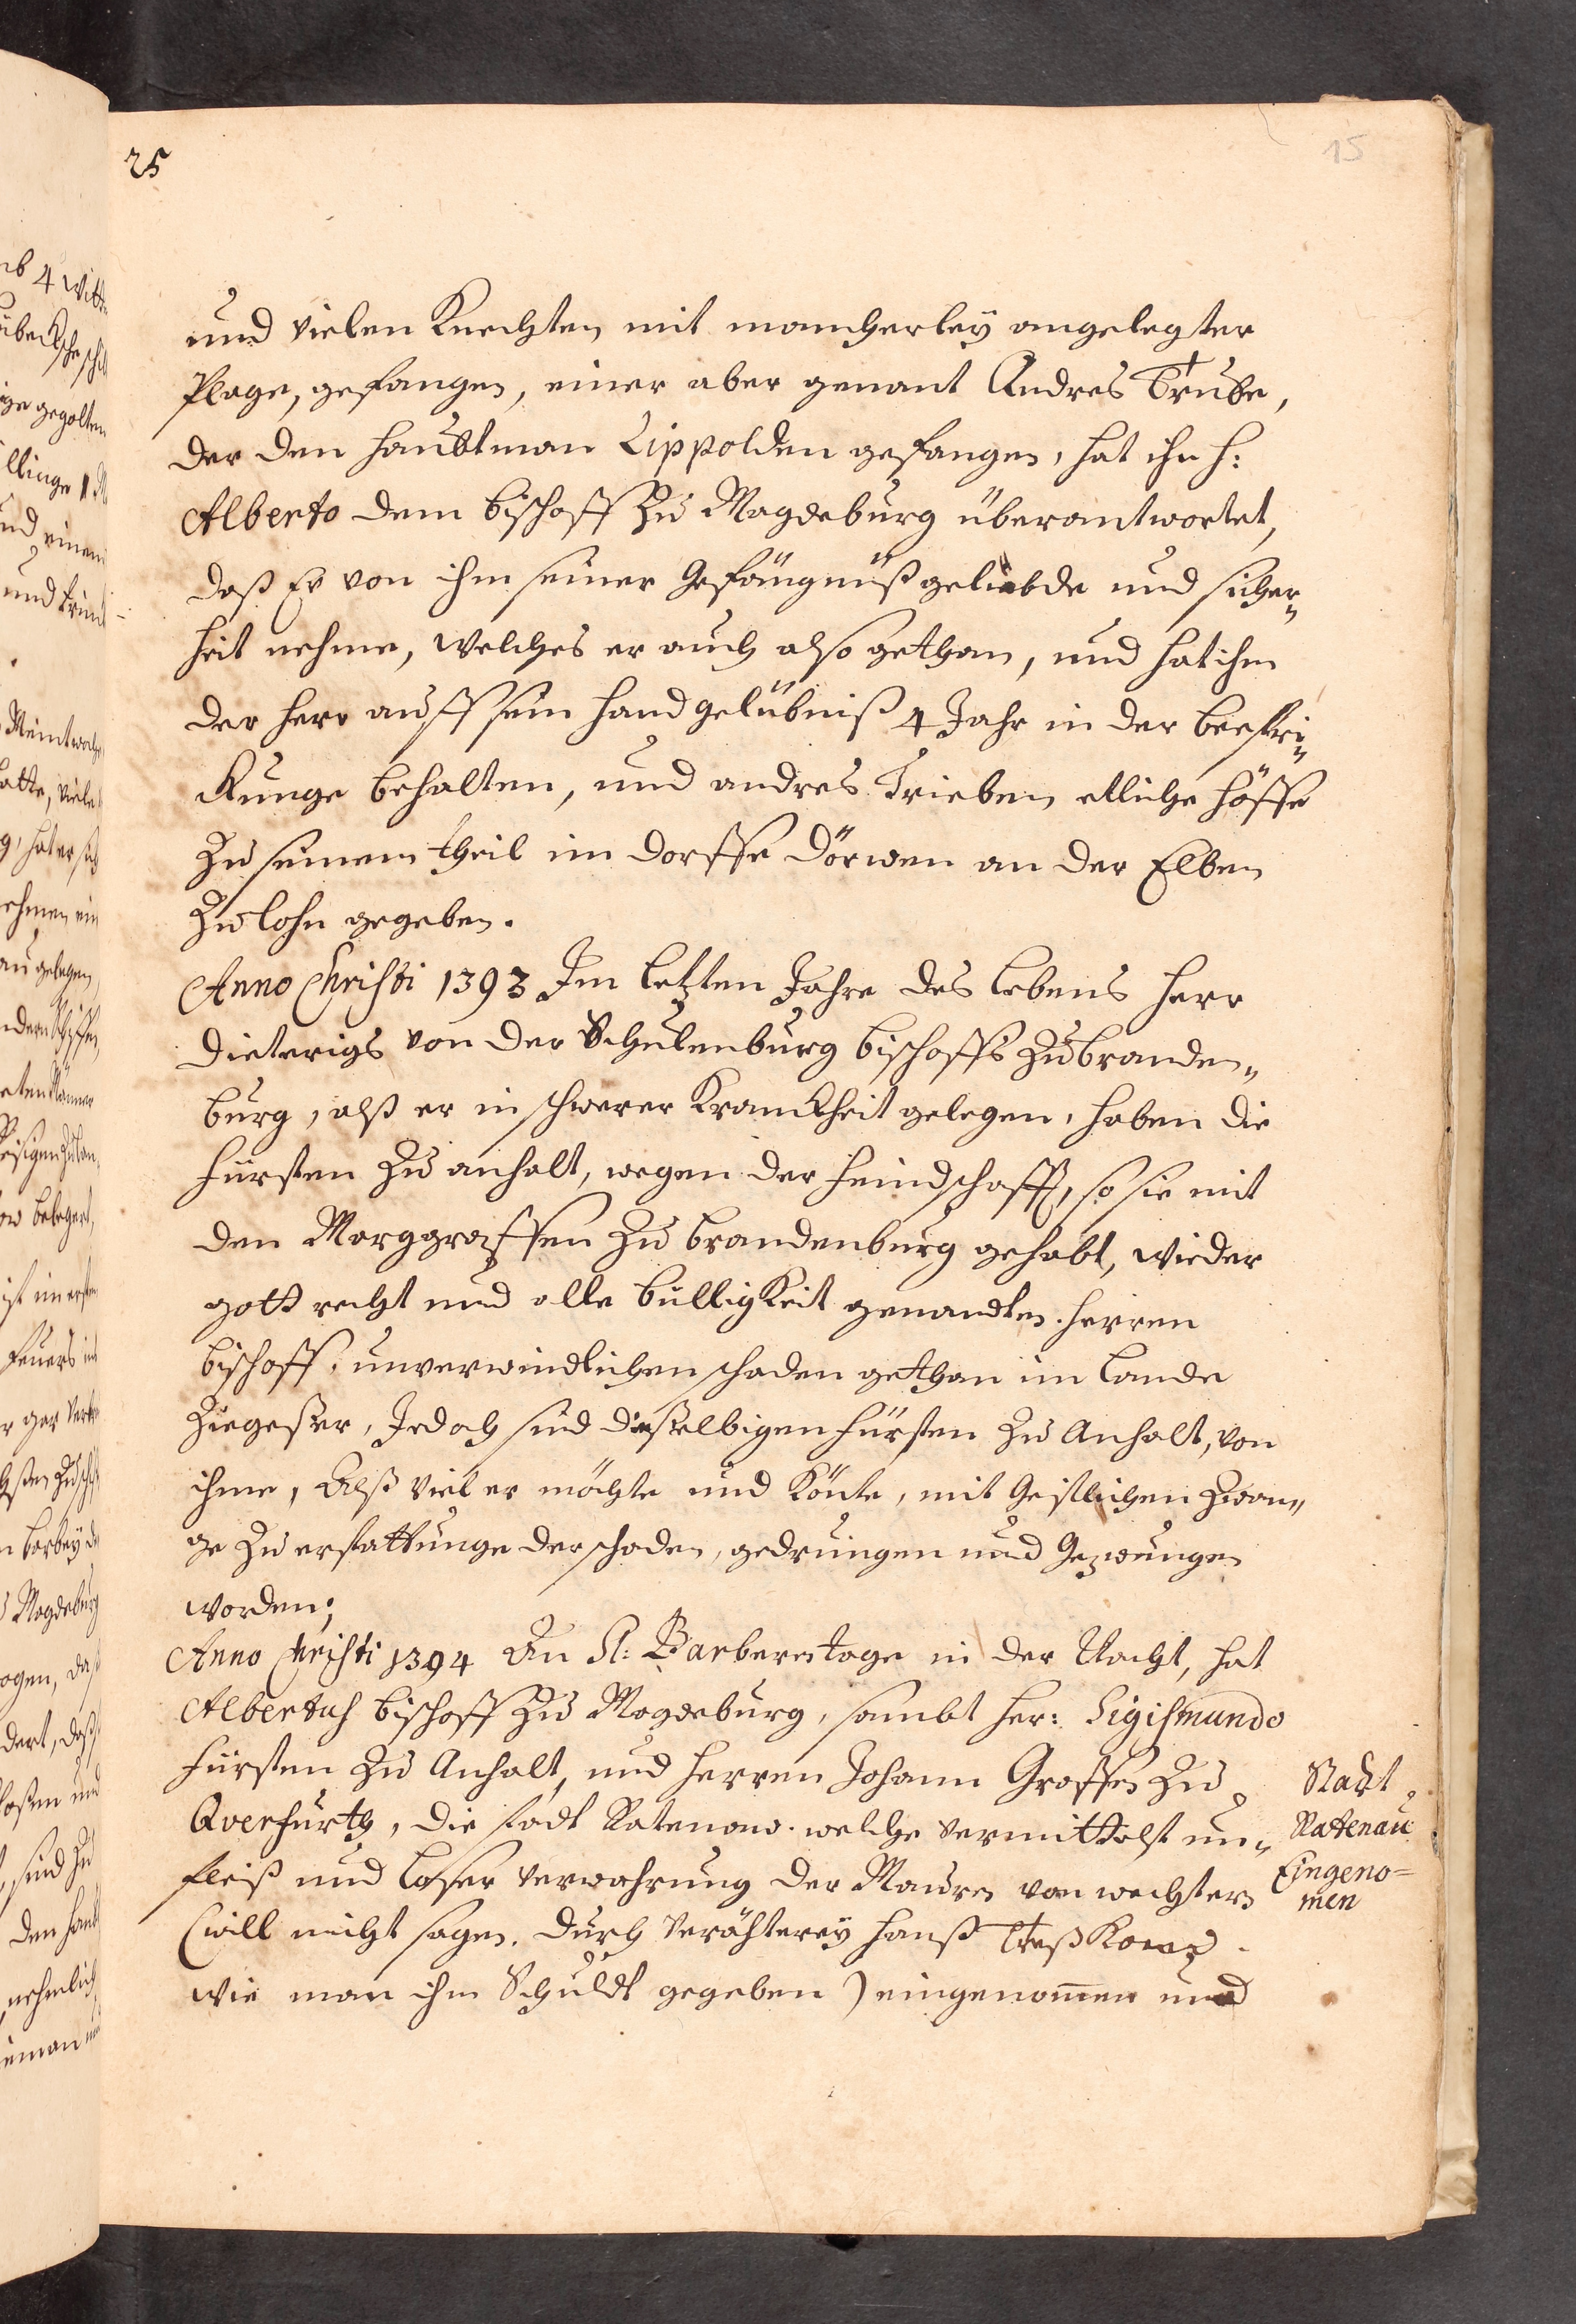 25
15
und vielen Knechten mit mancherleÿ angelegter
Plage, gefangen, einer aber genant Andres Trübe,
der den Haubtman Lippolden gefangen, hat ihn H:
Alberto dem Bischoff zu Magdeburg überantwortet,
daß Er von ihm seiner Gefängnüß geliebde und sicher„
heit nehme, welches er auch also gethan, und hat ihn
der Herr auff sein Handgelübniß 4 Jahr in der bestri„
ckunge behalten, und andres Trieben etliche Höffe
zu seinem theil im dorffe Dörwen an der Elben
zu lohn gegeben.
Anno Christi 1393 Im letzten Jahre des lebens Herr
Dieterichs von der Schulenburg bischoffs zu branden„
burg, alß er in schwerer Kranckheit gelegen, haben die
Fürsten zu anhalt, wegen der Feindschafft, so sie mit
den Marggraffen zu brandenburg gehabt, wieder
gott recht und alle billigkeit genandten Herren
bischoff, unverwindlichen schaden gethan im Lande
Ziegeßer, Jedoch sind dieselbigen Fürsten zu Anhalt, von
ihme, Alß viel er möchte und Könte, mit Geistlichen Zwan„
ge zu erstattunge der schaden, gedrungen und Gezwungen
worden;
Anno Christi 1394 An St: Barberen tage in der Nacht, hat
Albertus bischoff zu Magdeburg, sambt Her: Sigismundo
Fürsten zu Anhalt, und Herren Johann Graffen zu
Qverfurth, die stadt Ratenow. welche vermittelst un„
fleiß und loser verwahrung der Mauren von wechtern
(will nicht sagen. durch verähtereÿ Hanß Treßkow
wie man ihm Schuldt gegeben) eingenommen und
Stadt
Rattenau
Eingeno=
men